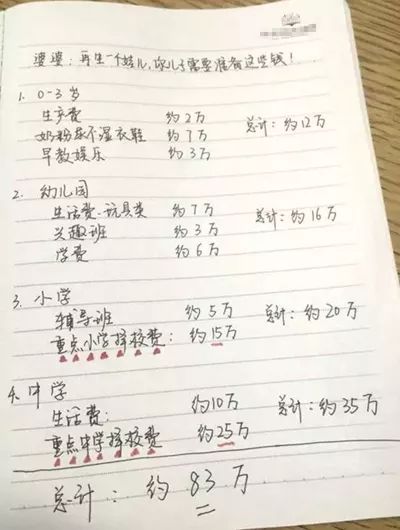 婆婆：再生一个娃儿，你儿子需要准备这些钱！
1. 0-3岁
生产费 约2万 总计：约12万
奶粉尿不湿衣鞋 约7万
早教娱乐 约3万
2. 幼儿园
生活费、玩具类 约7万 总计：约16万
兴趣班 约3万
学费 约6万
3. 小学
辅导班 约5万 总计：约20万
重点小学择校费： 约15万
4. 中学
生活费： 约10万 总计：约35万
重点中学择校费 约25万
总计： 约83万